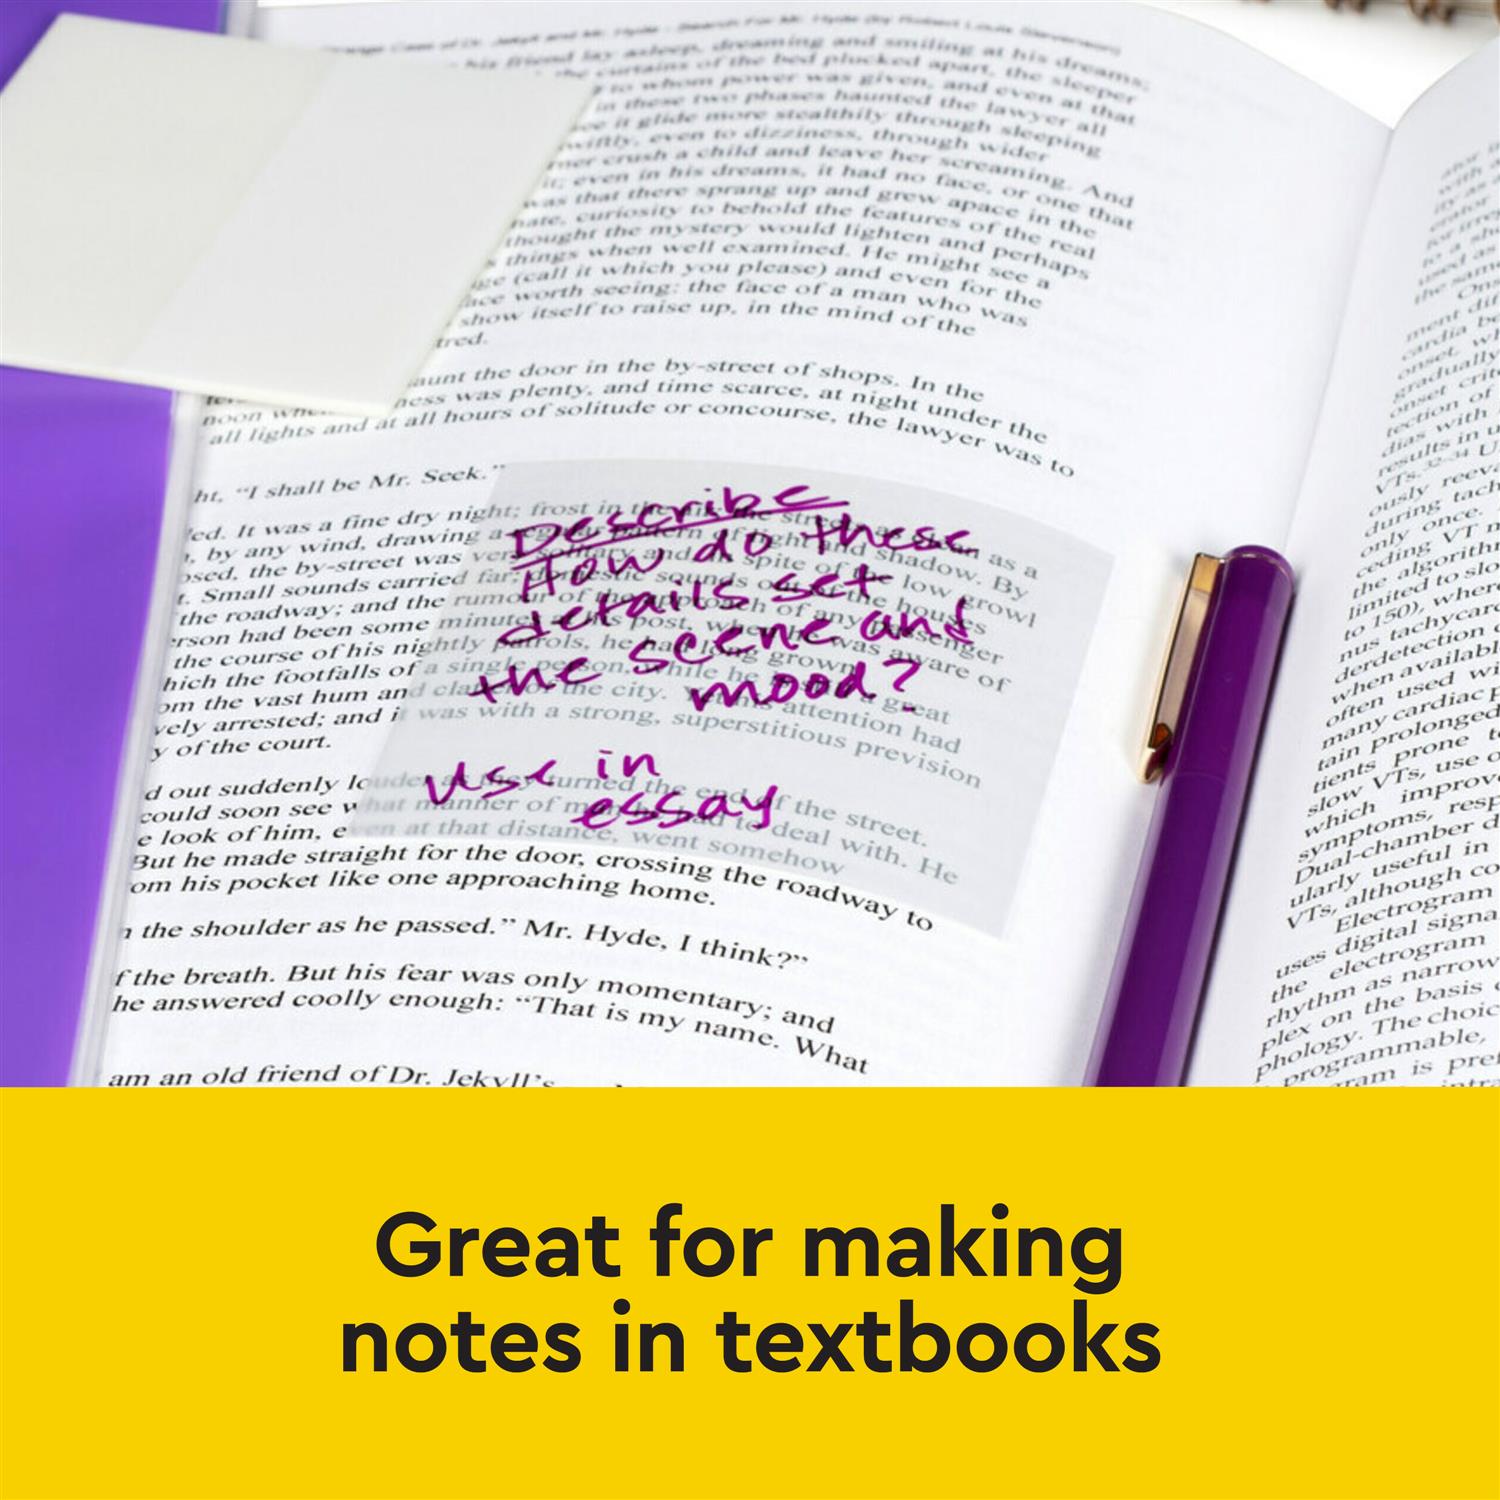 Strange Case of Dr. Jekyll and Mr. Hyde - Search For Mr. Hyde (by Robert Louis Stevenson)
his friend lay asleep, dreaming and smiling at his dreams;
the curtains of the bed plucked apart, the sleeper
to whom power was given, and even at that
in these two phases haunted the lawyer all
see it glide more stealthily through sleeping
wiftly, even to dizziness, through wider
ner crush a child and leave her screaming. And
it; even in his dreams, it had no face, or one that
was that there sprang up and grew apace in the
nate, curiosity to behold the features of the real
thought the mystery would lighten and perhaps
s things when well examined. He might see a
ge (call it which you please) and even for the
ace worth seeing: the face of a man who was
show itself to raise up, in the mind of the
tred.
aunt the door in the by-street of shops. In the
noon when ness was plenty, and time scarce, at night under the
all lights and at all hours of solitude or concourse, the lawyer was to
ht, “I shall be Mr. Seek.”
ed. It was a fine dry night; frost in the air; the streets as clean as a
, by any wind, drawing a regular pattern of light and shadow. By
osed, the by-street was very solitary and in spite of the low growl
t. Small sounds carried far; domestic sounds out of the houses
the roadway; and the rumour of the approach of any passenger
erson had been some minutes at his post, when he was aware of
the course of his nightly patrols, he had long grown
hich the footfalls of a single person, while he is still a great
om the vast hum and clatter of the city. Yet his attention had
vely arrested; and it was with a strong, superstitious prevision
y of the court.
d out suddenly louder as they turned the end of the street.
could soon see what manner of man he had to deal with. He
e look of him, even at that distance, went somehow
But he made straight for the door, crossing the roadway to
om his pocket like one approaching home.
n the shoulder as he passed.” Mr. Hyde, I think?”
f the breath. But his fear was only momentary; and
he answered coolly enough: “That is my name. What
am an old friend of Dr. Jekyll’s
Describe
How do these
details set
the scene and
mood?
Use in
essay
ment dif
cardia be
onset, wh
gradually
onset crit
tection of
dias with
results in u
VTs.32-34 U
ously reeva
during tach
only once.
ceding VT m
the algorithm
limited to slo
to 150), where
nus tachycard
derdetection o
when available
often used wi
many cardiac p
tain prolonged
tients prone to
slow VTs, use o
which improve
symptoms, resp
Dual-chamber d
ularly useful in
VTs, although co
Electrogram
uses digital signa
the electrogram
rhythm as narrow
plex on the basis o
phology. The choic
programmable,
gram is pref
Great for making
notes in textbooks